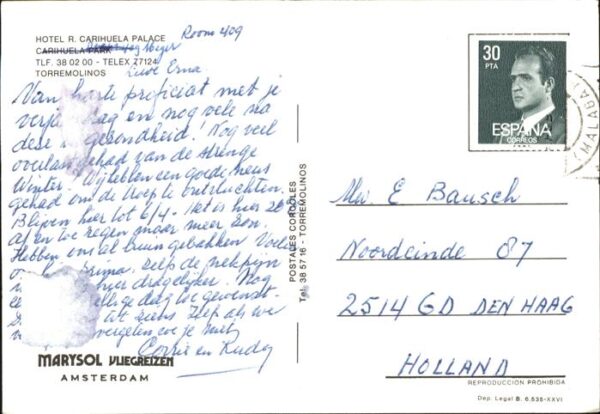 HOTEL R. CARIHUELA PALACE
CARIHUELA PARK
TLF. 38 02 00 - TELEX 77124
TORREMOLINOS
Room 409
Lieve Erna
Van harte proficiat met je
en nog vele na
deze in gezondheid! Nog veel
overlast gehad van de strenge
winter. Wij hebben een goede neus
gehad om de troep te ontvluchten.
Blijven hier tot 6/4. Het is hier
Af en toe regen maar meer zon.
Hebben ons al bruin gebakken
prima. Zelf de nekpijn
hier dragelijker. Nog
dag toe gewenst.
tot ziens
vergeten we je niet
Corrie en Rudy
MARYSOL VLIEGREIZEN
AMSTERDAM
POSTALES CORDOLES
Tel. 38 57 16 - TORREMOLINOS
30
PTA
ESPAÑA
CORREOS
(MALAGA)
Mw. E Bausch
Noordeinde 87
2514 GD DEN HAAG
HOLLAND
REPRODUCCION PROHIBIDA
Dep. Legal B. 6.536-XXVI